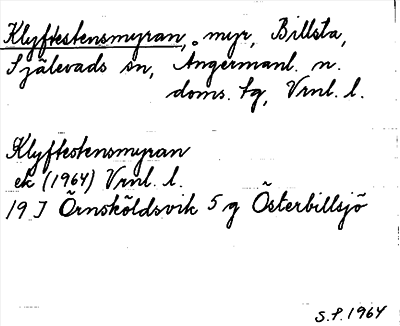 Klyftestensmyran, myr, Billsta,
Själevads sn, Ångermanl. n.
doms. tg, Vrnl. l.
Klyftestensmyran
ek (1964) Vrnl. l.
19 J Örnsköldsvik 5 g Österbillsjö
S.P. 1964